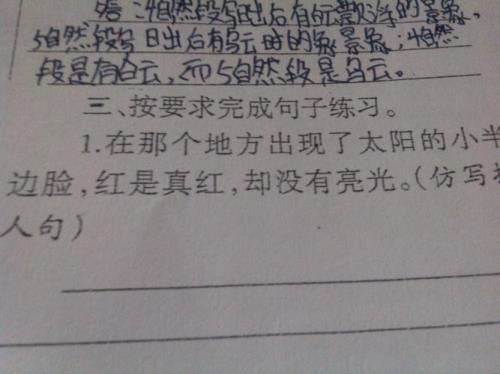 答:4自然段写日出后有云 的景象,
5自然段写日出后有乌云时的 景象;4自然
段是有白云,而5自然段是乌云。
三、按要求完成句子练习。
1.在那个地方出现了太阳的小半
边脸,红是真红,却没有亮光。(仿写
人句)